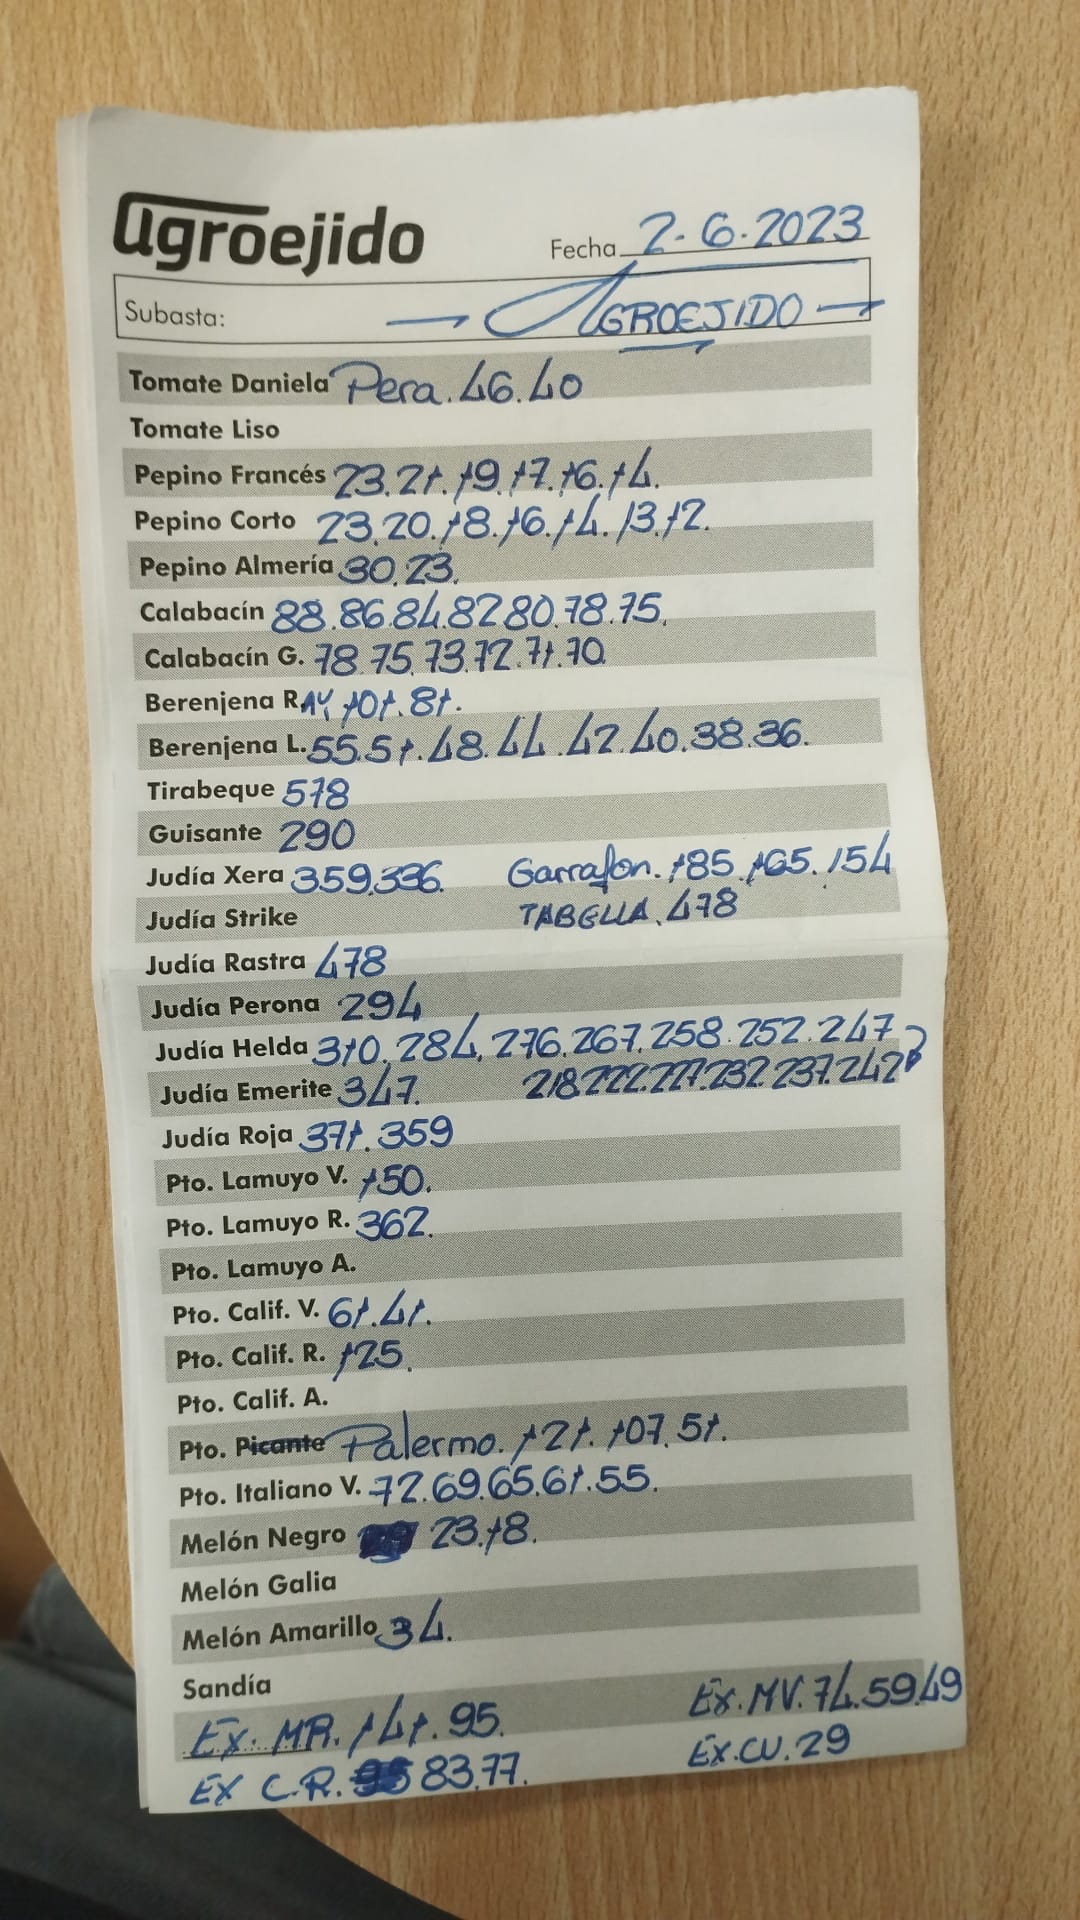 agroejido
Fecha 2-6-2023
Subasta: AGROEJIDO
Tomate Daniela Pera. 46.40
Tomate Liso
Pepino Francés 23.21.19.17.16.14.
Pepino Corto 23.20.18.16.14.13.12.
Pepino Almería 30.23.
Calabacín 88.86.84.82 80.78.75.
Calabacín G. 78 75.73.72.71.70.
Berenjena RAY 101.81.
Berenjena L. 55.51.48.44.42.40.38.36.
Tirabeque 578
Guisante 290
Judía Xera 359.336. Garrafon. 185.165.154
Judía Strike TABELLA. 478
Judía Rastra 478
Judía Perona 294
Judía Helda 310.284.276.267.258.252.247
Judía Emerite 347. 218.222.227.232.237.242
Judía Roja 371.359
Pto. Lamuyo V. 150.
Pto. Lamuyo R. 362.
Pto. Lamuyo A.
Pto. Calif. V. 61.41.
Pto. Calif. R. 125.
Pto. Calif. A.
Pto. Picante Palermo. 121.107.51.
Pto. Italiano V. 72.69.65.61.55.
Melón Negro 23.18.
Melón Galia
Melón Amarillo 34.
Sandía
Ex. MR. 141.95. Ex. MV. 74.59.49
EX C.R. 83.77. EX.CU.29